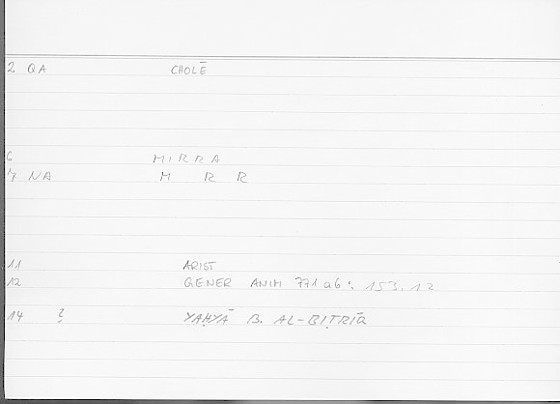 2 QA CHOLĒ
6 MIRRA
7 NA M R R
11 ARIST
12 GENER ANIM 771a6 : 153.12
14 ? YAḤYĀ B. AL-BIṬRĪQ